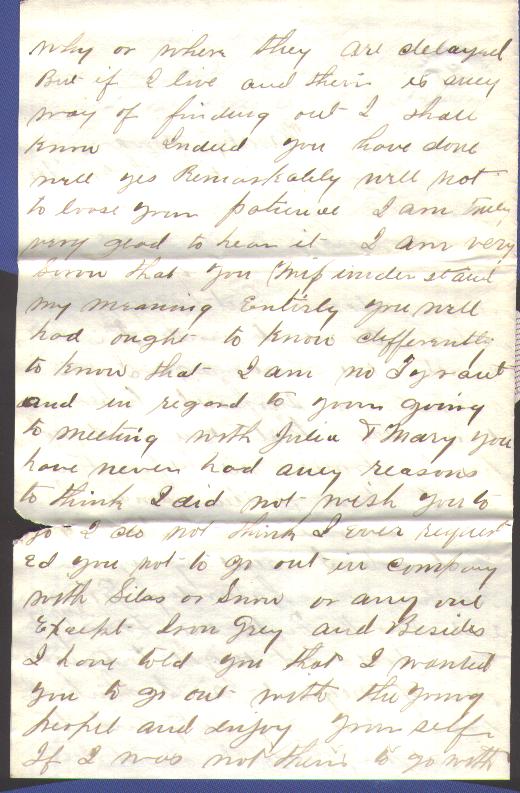 why or where they are delayed
But if I live and their is any
way of finding out I shall
know Indeed you have done
well yes Remarkabely well not
to loose your patience I am truly
very glad to hear it I am very
Sorow that you Missunderstand
my meaning Entirly you well
had ought to know differently
to know that I am no Tyrant
and in regard to your going
to meeting with Julia & Mary you
have never had any reasons
to think I did not wish you to
go I do not think I ever request
ed you not to go out in company
with Silas or Snow or any one
Except Iron Grey and Besides
I have told you that I wanted
you to go out with the young
peopel and enjoy your self
If I was not their to go with